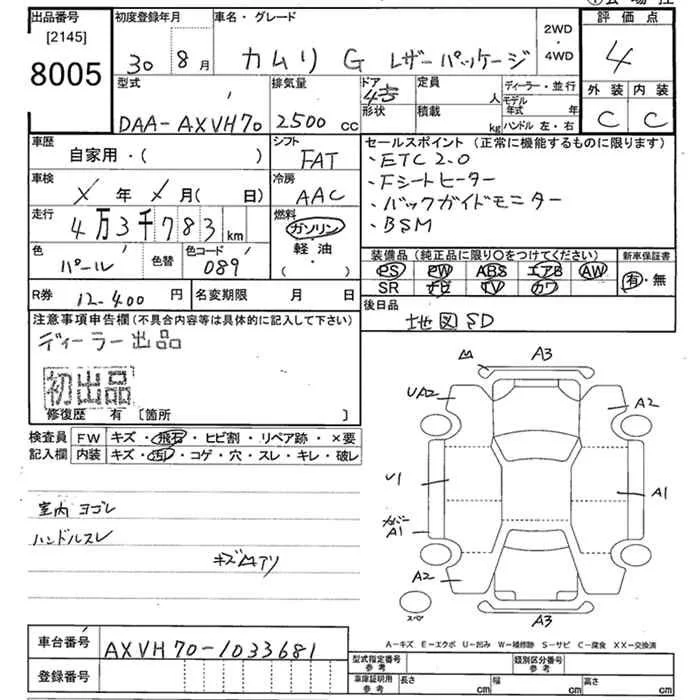 出品番号 初度登録年月 車名・グレード 評価点
[2145] 8005
30年 8月 カムリ G レザーパッケージ 2WD・4WD 4
型式 排気量 ドア 定員 ディーラー・並行 外装 内装
DAA-AXVH70 2500cc 人 モデル年式 年 C C
形状 積載 kg ハンドル 左・右
車歴 シフト セールスポイント (正常に機能するものに限ります)
自家用・( ) FAT ・ETC 2.0
車検 冷房 ・Fシートヒーター
X年 X月(日) AAC ・バックガイドモニター
走行 燃料 ・BSM
4万3千783km ガソリン
軽油・( )
色 色替 色コード 装備品 (純正品に限り○をつけてください) 新車保証書
パール 089 PS PW ABS エアB AW 有・無
SR ナビ TV カワ
R券 12-400円 名変期限 月 日 後日品
地図SD
注意事項申告欄(不具合内容等は具体的に記入して下さい)
ディーラー出品
初出品
修復歴 有 [箇所 ]
検査員 FW キズ・飛石・ヒビ割・リペア跡・×要
記入欄 内装 キズ・汚レ・コゲ・穴・スレ・キレ・破レ
室内 ヨゴレ
ハンドルスレ
A3
UA2 A2
U1 A1
カバー
A1
A2
スペア A3
A-キズ E-エクボ U-凹み W-補修跡 S-サビ C-腐食 XX-交換済
車台番号 AXVH70-1033681
登録番号
型式指定番号 参考 類別区分番号 参考
車庫証明用 参考 長さ cm 幅 cm 高さ cm